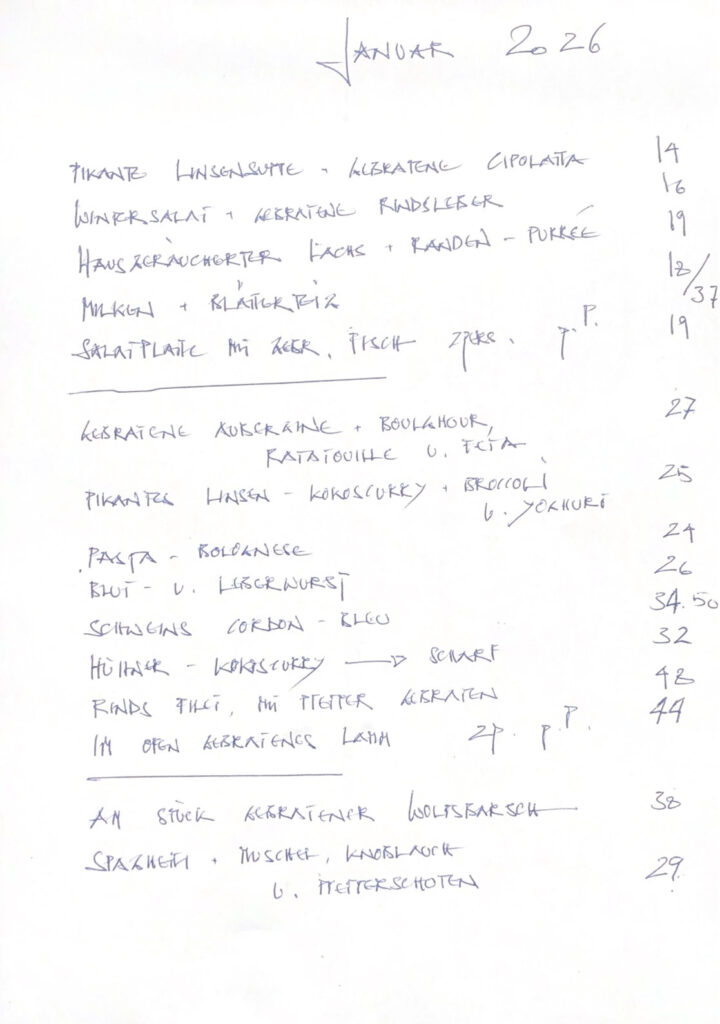 JANUAR 2026
PIKANTE LINSENSUPPE + GEBRATENE CIPOLATTA 14
WINTERSALAT + GEBRATENE RINDSLEBER 16
HAUSGERÄUCHERTER LACHS + RANDEN - PÜRRÉE 19
MILKEN + BLÄTTERTEIG 18/37
SALATPLATTE MIT GEBR. FISCH 2 p. P. 19
GEBRATENE AUBERGINE + BOULGHOUR, 27
RATATOUILLE U. FETA
PIKANTES LINSEN - KOKOSCURRY + BROCCOLI 25
U. YOGHURT
PASTA - BOLOGNESE 24
BLUT - U. LEBERWURST 26
SCHWEINS CORDON - BLEU 34.50
HÜHNER - KOKOSCURRY → SCHARF 32
RINDS FILET, MIT PFEFFER GEBRATEN 48
IM OFEN GEBRATENES LAMM 2p. p. P. 44
AM STÜCK GEBRATENER WOLFSBARSCH 38
SPAGHETTI + MUSCHEL, KNOBLAUCH
U. PFEFFERSCHOTEN 29.